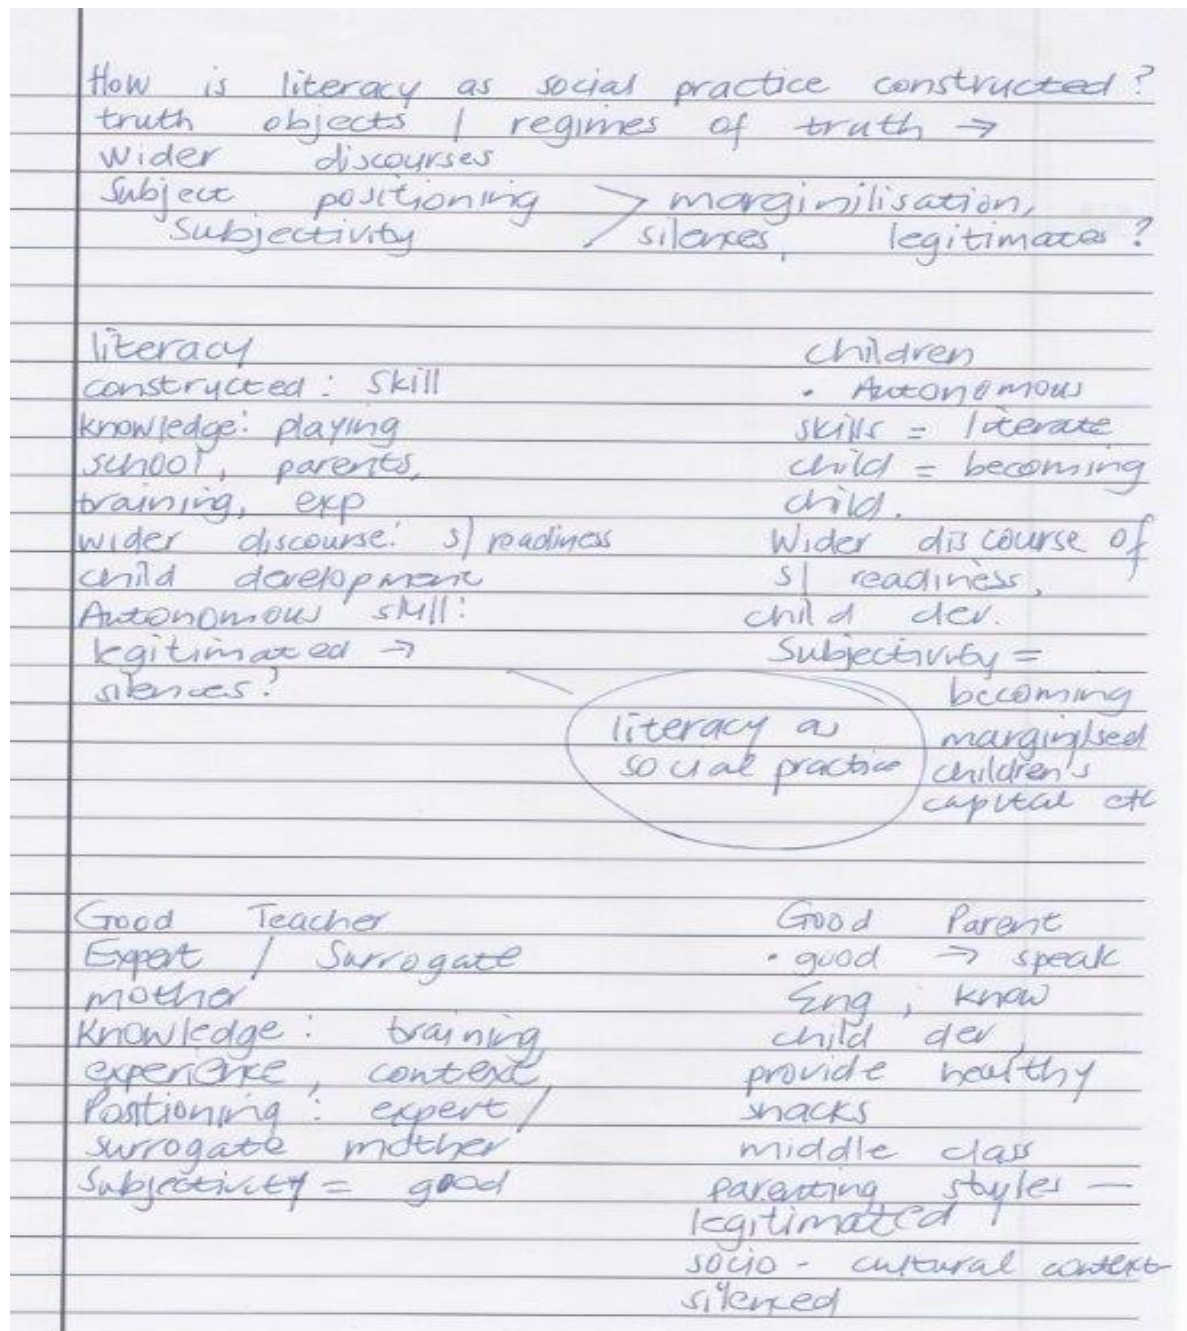 How is literacy as social practice constructed?
truth objects / regimes of truth →
wider discourses
Subject positioning > marginilisation,
Subjectivity silences, legitimates?
literacy
constructed: skill
knowledge: playing
school, parents,
training, exp
wider discourse: s/readiness
child development
Autonomous skill:
legitimated →
silences?
children
• Autonomous
skills = literate
child = becoming
child.
Wider discourse of
s/ readiness,
child dev.
Subjectivity =
becoming
marginlised
children's
capital etc
literacy as
social practice
Good Teacher
Expert / Surrogate
mother
Knowledge: training,
experience, context,
Positioning: expert /
surrogate mother
Subjectivity = good
Good Parent
• good → speak
Eng, know
child dev,
provide healthy
snacks
middle class
parenting styles —
legitimated
socio-cultural context
silenced